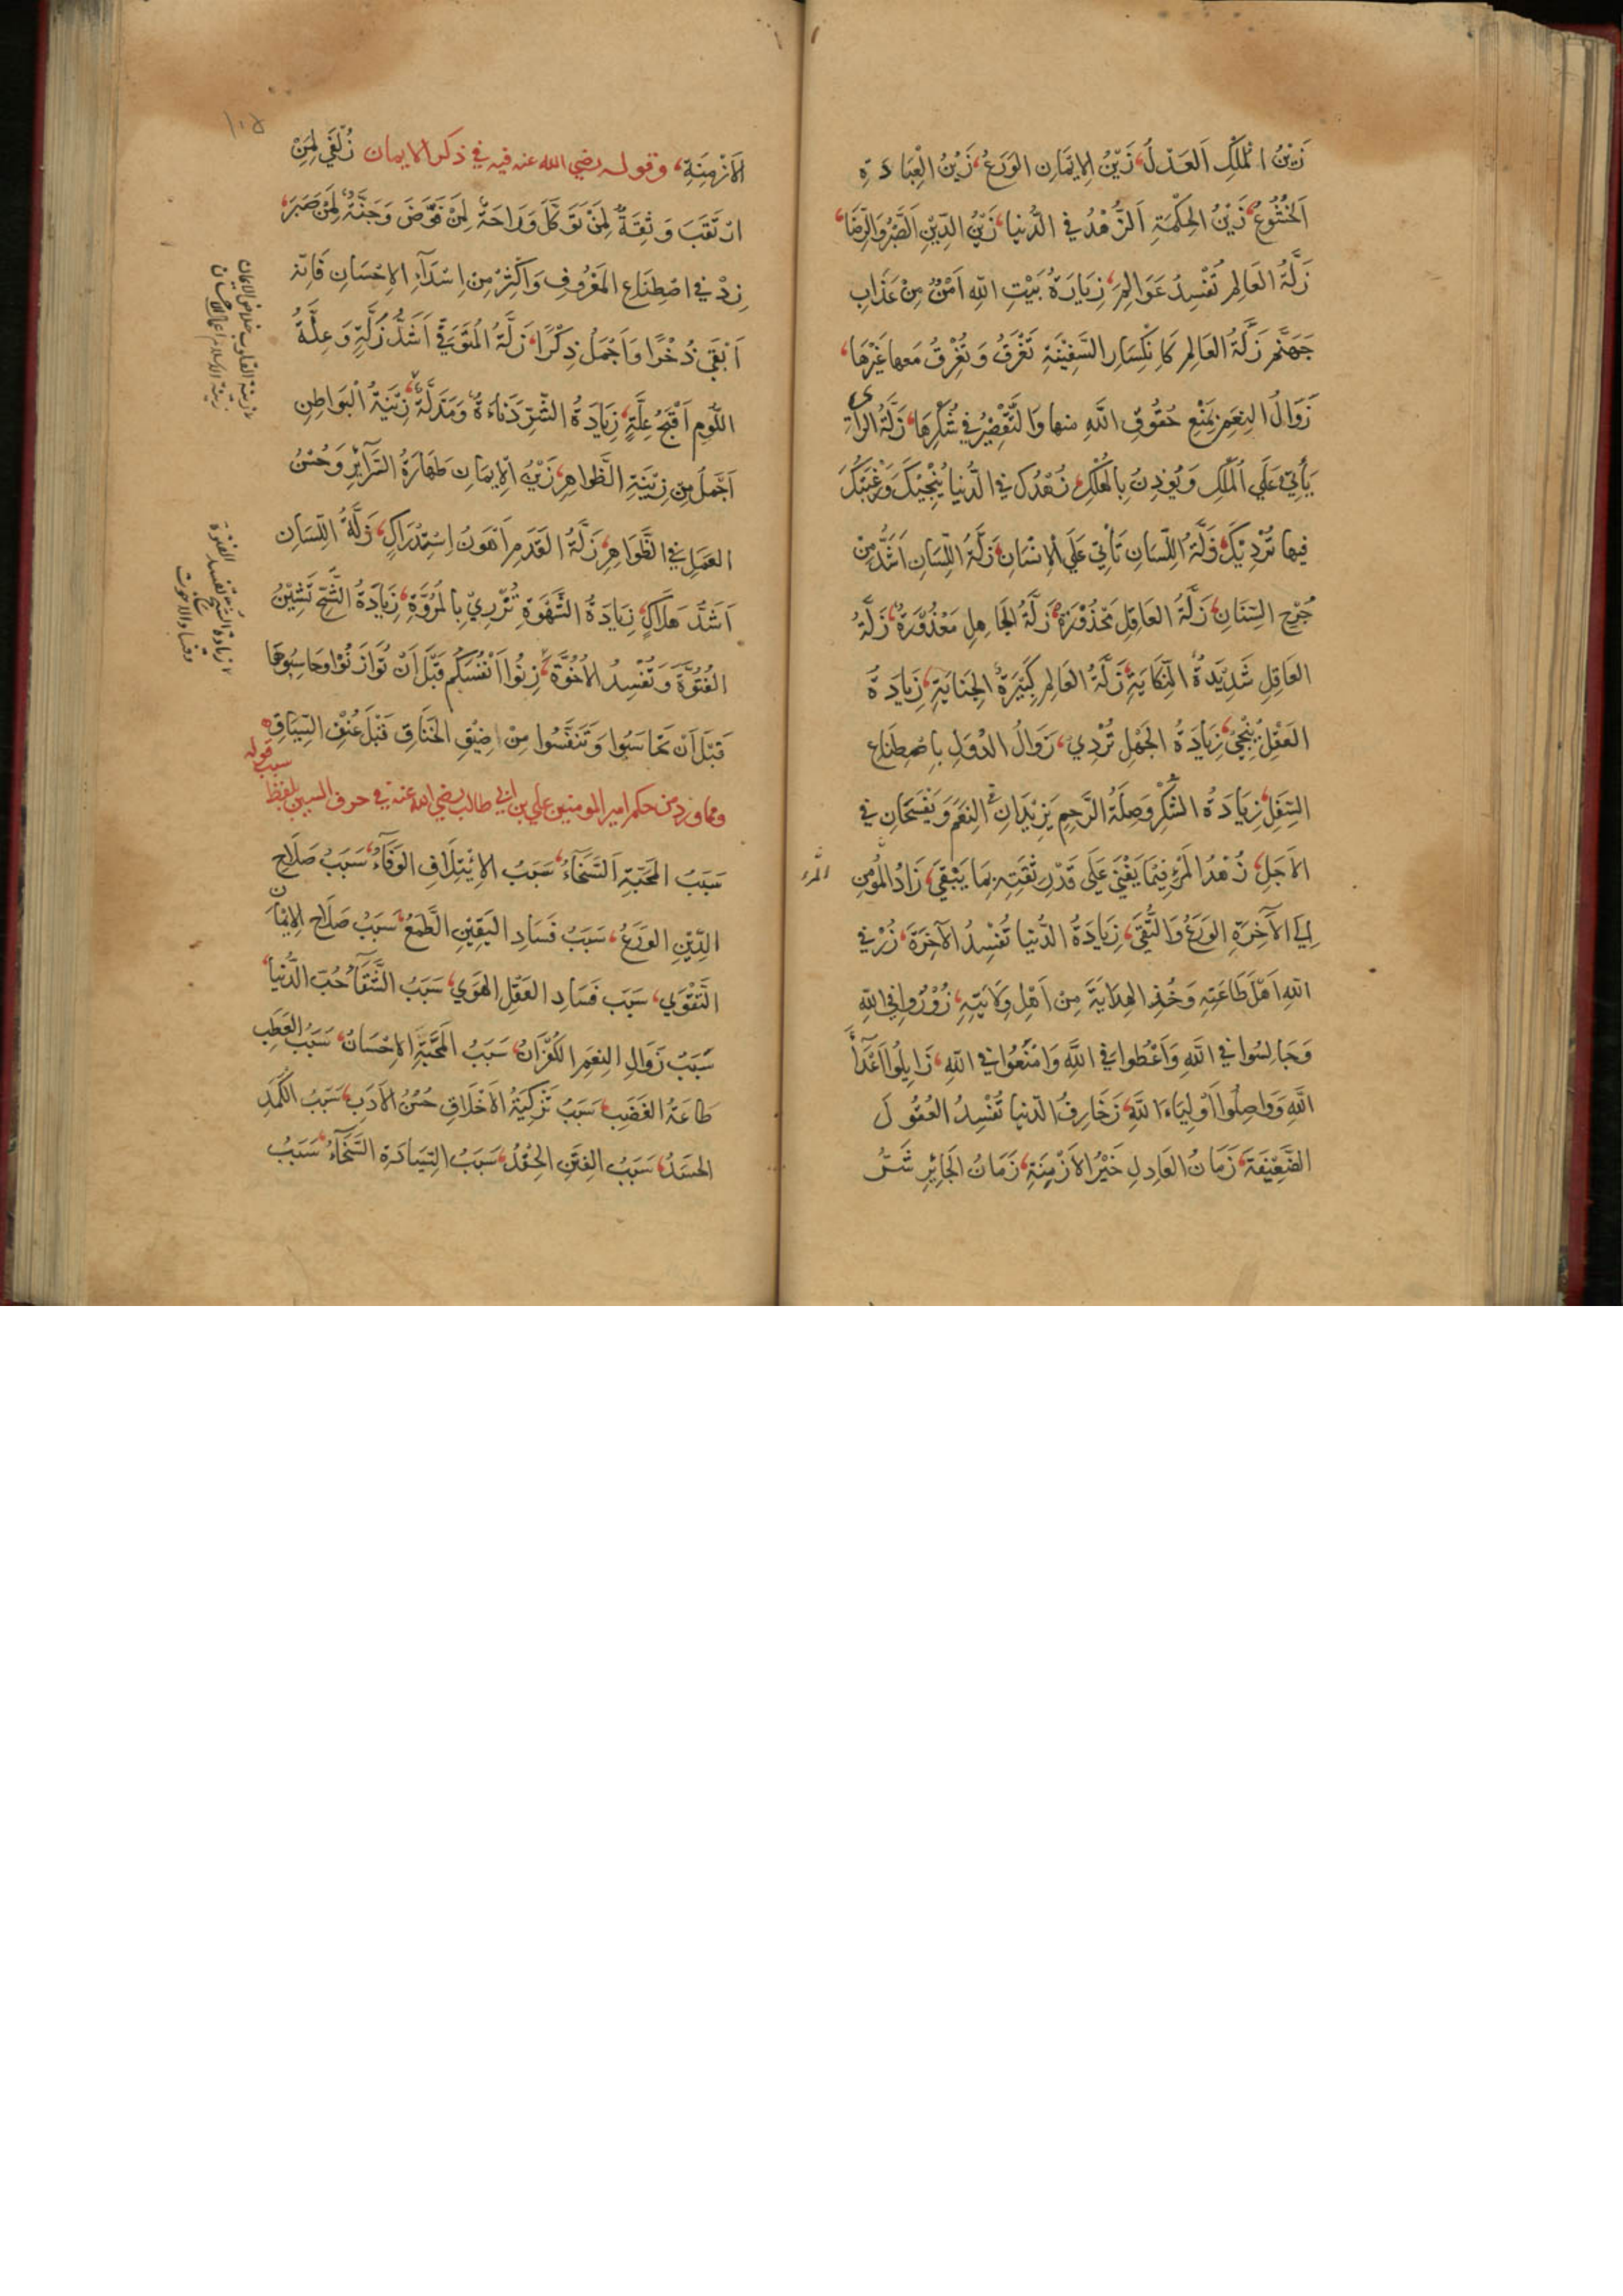 زَيْنُ الْمُلْكِ اَلعَدْلُ، زَيْنُ الاِيمَانِ الوَرَعُ، زَيْنُ الْعِبَادَةِ
اَلخُشُوعُ، زَيْنُ الحِكْمَةِ اَلزُّهْدُ فِي الدُّنيا، زَيْنُ الدِّيْنِ اَلصَّبْرُ وَالرِّضَا،
زَلَّةُ العَالِمِ تُفْسِدُ عَوَالِمَ، زِيَارَةُ بَيْتِ اللهِ اَمْنٌ مِنْ عَذَابِ
جَهَنَّمَ زَلَّةُ العَالِمِ كَاِنْكِسَارِ السَّفِيْنَةِ تَغْرَقُ وَتُغْرِقُ مَعها غَيْرَهَا،
زَوَالُ النِعَمِ بِمَنْعِ حُقُوقِ اللَّهِ منها وَالتَّقْصِيْرُ فِي شُكْرِهَا، زَلَّةُ الرَّأيِ
يَأتِي عَلَي المُلْكِ وَيُؤذِنُ بِالهُلْكِ، زُهْدُكَ فِي الدُّنيا يُنْجِيْكَ وَرَغْبَتُكَ
فِيها تُرْدِيْكَ، زَلَّةُ اللِّسَانِ تَأتِي عَلَي الاِنْسَانِ، زَلَّةُ اللِّسَانِ اَشَدُّ مِنْ
جُرْحِ السِّنَانِ، زَلَّةُ العَاقِلِ مَحْذُوْرَةٌ، زَلَّةُ الجَاهِلِ مَعْذُوْرَةٌ، زَلَّةُ
العَاقِلِ شَدِيْدَةُ النِّكَايَةِ، زَلَّةُ العَالِمِ كَبِيْرَةُ الجِنَايَةِ، زِيَادَةُ
العَقْلِ يُنْجِي، زِيَادَةُ الجَهْلِ تُرْدِي، زَوَالُ الدُّوَلِ بِاصْطِنَاعِ
السَّفِلِ، زِيَادَةُ الشُّكْرِ وَصِلَةُ الرَّحِمِ يَزِيْدَانِ النِعَمَ وَيَفْسَحَانِ فِي
الاَجَلِ، زُهْدُ المَرْءِ فِيْمَا يَفْنَي عَلَي قَدْرِ ثِقَتِهِ بِمَا يَبْقَي، زَادُ المُؤمِنِ
المرء
اِلَي الآخِرَةِ الوَرَعُ وَالتُّقَي، زِيَادَةُ الدُّنيا تُفْسِدُ الآخِرَةَ، زُرْ فِي
اللهِ اَهْلَ طَاعَتِهِ وَخُذِ الهِدَايَةَ مِنْ اَهْلِ وَلَايَتِهِ، زُوْرُوا فِي اللهِ
وَجَالِسُوا فِي اللَّهِ وَاَعْطُوا فِي اللَّهِ وَامْنَعُوا فِي اللهِ، زَايِلُوا اَعْدَآءَ
اللَّهِ وَوَاصِلُوا اَوْلِيَاءَ اللهِ، زَخَارِفُ الدّنيا تُفْسِدُ العُقُولَ
الضَّعِيْفَةَ، زَمَانُ العَادِلِ خَيْرُ الاَزْمِنَةِ، زَمَانُ الجَائِرِ شَرُّ
١٠٥
الاَزْمِنَةِ، وقوله رضي الله عنه فيه في ذكر الايمان زُلْفَي لِمَنِ
ارْتَقَبَ وَثِقَةٌ لِمَنْ تَوَكَّلَ وَرَاحَةٌ لِمَنْ فَوَّضَ وَجُنَّةٌ لِمَنْ صَبَرَ،
زِدْ فِي اصْطِنَاعِ المَعْرُوفِ وَاَكْثِرْ مِنْ اِسْدَآءِ الاِحْسَانِ فَاِنّهُ
اَبْقَي ذُخْرًا وَاَجْمَلُ ذِكْرًا، زَلَّةُ المُتَوَقِّي اَشَدُّ زَلَّةٍ وَعِلَّةُ
اللُّومِ اَقْبَحُ عِلَّةٍ، زِيَادَةُ الشَّرِّ دَنَاءَةٌ وَمَذَلَّةٌ، زِيْنَةُ الْبَوَاطِنِ
اَجْمَلُ مِنْ زِيْنَةِ الظَّوَاهِرِ، زَيْنُ الاِيمَانِ طَهَارَةُ السَّرَآئِرِ وَحُسْنُ
العَمَلِ فِي الظَّوَاهِرِ، زَلَّةُ القَدَمِ اَهْوَنُ اِسْتِدْرَاكٍ، زَلَّةُ اللِّسَانِ
اَشَدُّ هَلَاكٍ، زِيَادَةُ الشَّهْوَةِ تُزْرِيْ بِالمُرُوَّةِ، زِيَادَةُ الشُّحِّ تَشِيْنُ
الفُتُوَّةَ وَتُفْسِدُ الأُخُوَّةَ، زِنُوْا اَنْفُسَكُم قَبْلَ اَنْ تُوَازَنُوْا وَحَاسِبُوهَا
قَبْلَ اَنْ تَحَاسَبُوا وَتَنَفَّسُوا مِنْ ضِيْقِ الخِنَاقِ قَبْلَ عُنْفِ السِّيَاقِ
ومما ورد من حكم امير المومنين علي بن ابي طالب رضي الله عنه في حرف السين بلفظ
سبب قوله
سَبَبُ المَحَبَّةِ اَلسَّخَآءُ، سَبَبُ الاِيْتِلَافِ الوَفَآءُ، سَبَبُ صَلَاحِ
الدِّيْنِ الوَرَعُ، سَبَبُ فَسَادِ اليَقِيْنِ الطَّمَعُ، سَبَبُ صَلَاحِ الاِيْمَانِ
التَّقْوَي، سَبَبُ فَسَادِ العَقْلِ الهَوَي، سَبَبُ الشَّقَآءِ حُبُّ الدُّنْيا،
سَبَبُ زَوَالِ النِعَمِ الكُفْرَانُ، سَبَبُ المَحَبَّةِ الاِحْسَانُ، سَبَبُ العَطَبِ
طَاعَةُ الغَضَبِ، سَبَبُ تَزْكِيَةُ الاَخْلَاقِ حُسْنُ الاَدَبِ، سَبَبُ الكَمَدِ
الحَسَدُ، سَبَبُ الفِتَنِ الحِقْدُ، سَبَبُ السِّيَادَةِ السَّخَآءُ، سَبَبُ
زينة القلوب خلاص الايمان
زينة الاسلام اعمال الاحسان
زيادة الشح